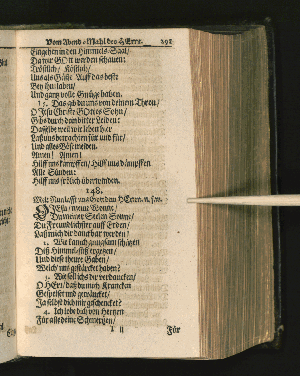 Vom Abend-Mahl des HErrn. 291
Eingehen in den Himmels-Saal/
Da wir GOtt werden schauen:
Tröstlich/ Köstlich/
Uns als Gäste Auff das beste
Bey ihm laben/
Und gantz volle Gnüge haben.
15. Das gib du uns von deinem Thron/
O JEsu Christe GOttes Sohn/
Gibs durch dein bitter Leiden:
Dasselbe weil wir leben hier
Laß uns betrachten für und für/
Und alles Böse meiden.
Amen! Amen!
Hilff uns kämpffen/ Hilff uns dämpffen
Alle Sünden:
Hilff uns frölich überwinden.
148.
Mel: Nun laßt uns Gott dem HErren. u. s. w.
O JEsu/ meine Wonne/
Du meiner Seelen Sonne/
Du Freundlichster auff Erden/
Laß mich dir danckbar werden!
2. Wie kan ich gnugsam schätzen
Diß Himmel-süß ergetzen/
Und diese theure Gaben/
Welch' uns gestärcket haben?
3. Wie soll ichs dir verdancken/
O HErr/ daß du mich Krancken
Gespeiset und geträncket/
Ja selbst dich mir geschencket?
4. Ich lobe dich von Hertzen
Für alle deine Schmertzen/
Für